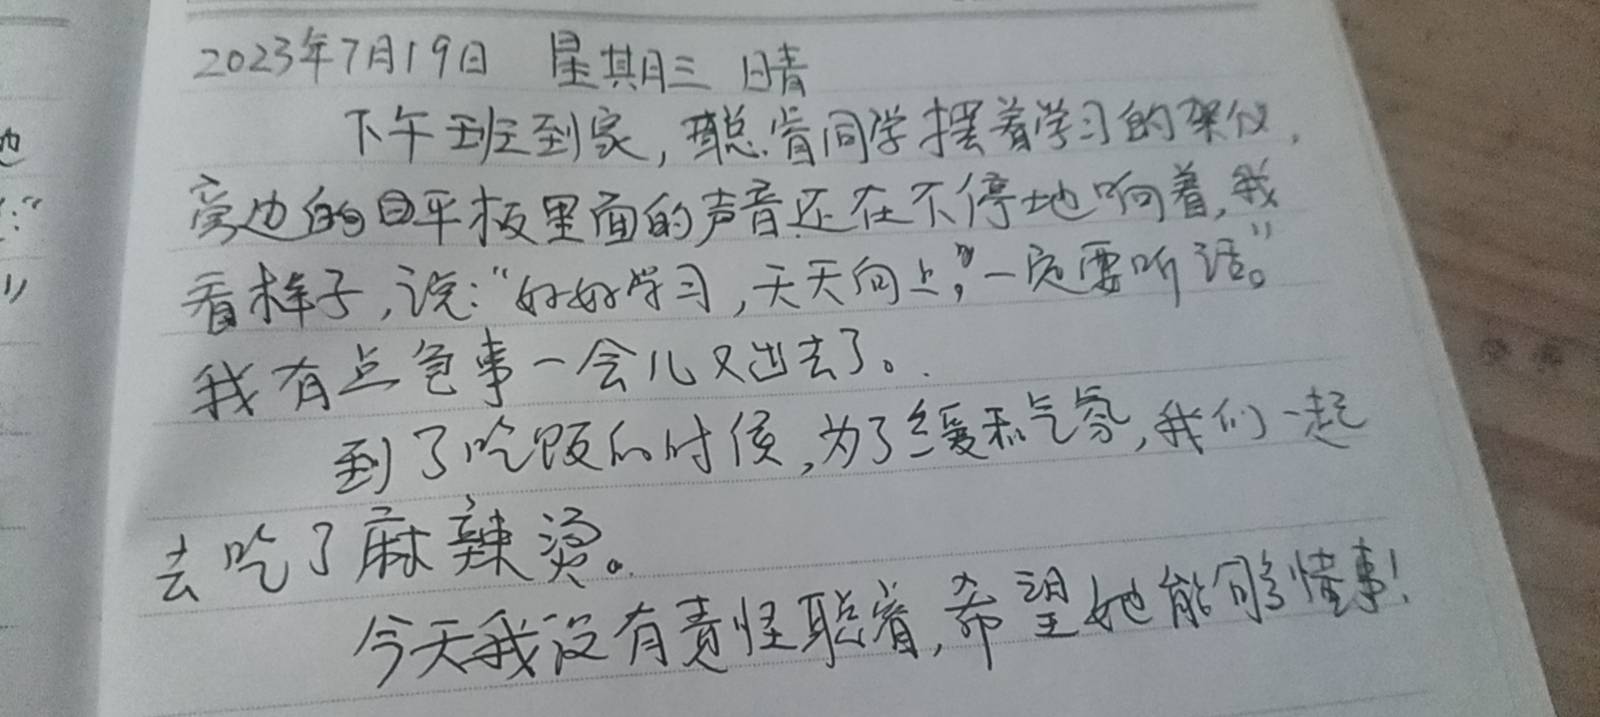 2023年7月19日 星期三 晴
下午班到家,聪肯同学摆着学习的架仪,
旁边的平板里面的声音还在不停地响着,我
看样子,说:“好好学习,天天向上”,“一定要听话”。
我有点急事一会儿又出去了。
到了吃饭的时候,为了缓和气氛,我们一起
去吃了麻辣烫。
今天我没有责怪聪肯,希望她能够懂事!